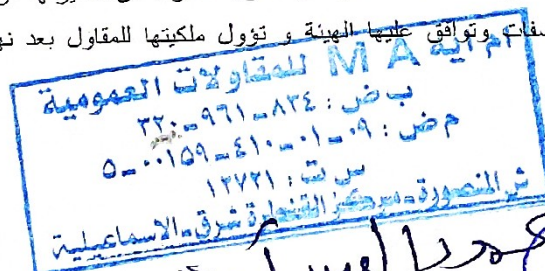 صفات وتوافق عليها الهيئة و تؤول ملكيتها للمقاول بعد
ام ايه M A للمقاولات العمومية
ب ض : ٨٣٤-٩٦١-٣٢٠
م ض : ٠٩-٠١-٤١٠-٠٠١٥٩-٥
س ت : ١٢٧٢١
ش المنصورة - مركز القنطرة شرق - الاسماعيلية